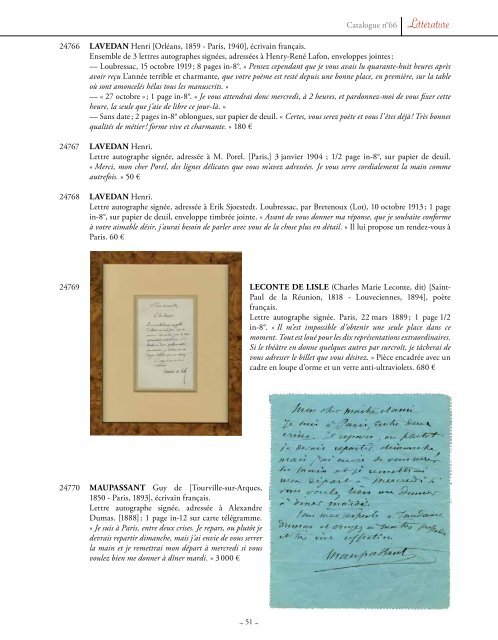 Catalogue n°66 Littérature
24766 LAVEDAN Henri [Orléans, 1859 - Paris, 1940], écrivain français.
Ensemble de 3 lettres autographes signées, adressées à Henry-René Lafon, enveloppes jointes :
— Loubressac, 15 octobre 1919 ; 8 pages in-8°. « Pensez cependant que je vous avais lu quarante-huit heures après
avoir reçu L'année terrible et charmante, que votre poème est resté depuis une bonne place, en première, sur la table
où sont amoncelés hélas tous les manuscrits. »
— « 27 octobre » ; 1 page in-8°. « Je vous attendrai donc mercredi, à 2 heures, et pardonnez-moi de vous fixer cette
heure, la seule que j'aie de libre ce jour-là. »
— Sans date ; 2 pages in-8° oblongues, sur papier de deuil. « Certes, vous serez poète et vous l'êtes déjà! Très bonnes
qualités de métier! forme vive et charmante. » 180 €
24767 LAVEDAN Henri.
Lettre autographe signée, adressée à M. Porel. [Paris,] 3 janvier 1904 ; 1/2 page in-8°, sur papier de deuil.
« Merci, mon cher Porel, des lignes délicates que vous m'avez adressées. Je vous serre cordialement la main comme
autrefois. » 50 €
24768 LAVEDAN Henri.
Lettre autographe signée, adressée à Erik Sjoestedt. Loubressac, par Bretenoux (Lot), 10 octobre 1913 ; 1 page
in-8°, sur papier de deuil, enveloppe timbrée jointe. « Avant de vous donner ma réponse, que je souhaite conforme
à votre aimable désir, j'aurai besoin de parler avec vous de la chose plus en détail. » Il lui propose un rendez-vous à
Paris. 60 €
24769
LECONTE DE LISLE (Charles Marie Leconte, dit) [Saint-
Paul de la Réunion, 1818 - Louveciennes, 1894], poète
français.
Lettre autographe signée. Paris, 22 mars 1889 ; 1 page 1/2
in-8°. « Il m'est impossible d'obtenir une seule place dans ce
moment. Tout est loué pour les dix représentations extraordinaires.
Si le théâtre en donne quelques autres par surcroît, je tâcherai de
vous adresser le billet que vous désirez. » Pièce encadrée avec un
cadre en loupe d'orme et un verre anti-ultraviolets. 680 €
24770 MAUPASSANT Guy de [Tourville-sur-Arques,
1850 - Paris, 1893], écrivain français.
Lettre autographe signée, adressée à Alexandre
Dumas, [1888] ; 1 page in-12 sur carte télégramme.
« Je suis à Paris, entre deux crises. Je repars, ou plutôt je
devrais repartir dimanche, mais j'ai envie de vous serrer
la main et je remettrai mon départ à mercredi si vous
voulez bien me donner à dîner mardi. » 3 000 €
Mon cher maître et ami
Je suis à Paris, entre deux
crises. Je repars, ou plutôt
je devrais repartir dimanche
mais j'ai envie de vous serrer
la main et je remettrai
mon départ à mercredi si
vous voulez bien me donner
à dîner mardi.
Tous mes respects à Madame
Dumas et
et bien vive affection
Maupassant
~ 51 ~